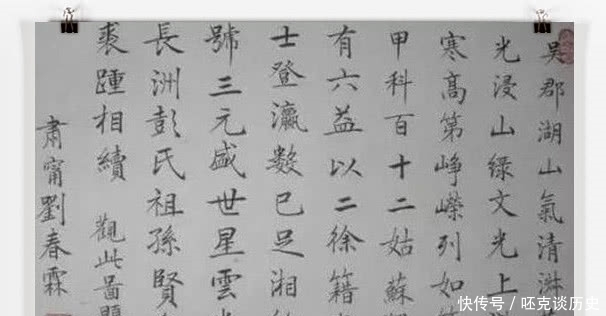 吳郡湖山氣清
光浸山綠文光上
寒高第崢嶸列如
甲科百十二姑蘇
有六益以二徐籍
士登瀛數已足湘
號三元盛世星雲
長洲彭氏祖孫賢
裘踵相續 觀此啚
肅甯劉春霖
快传号／呸克谈历史